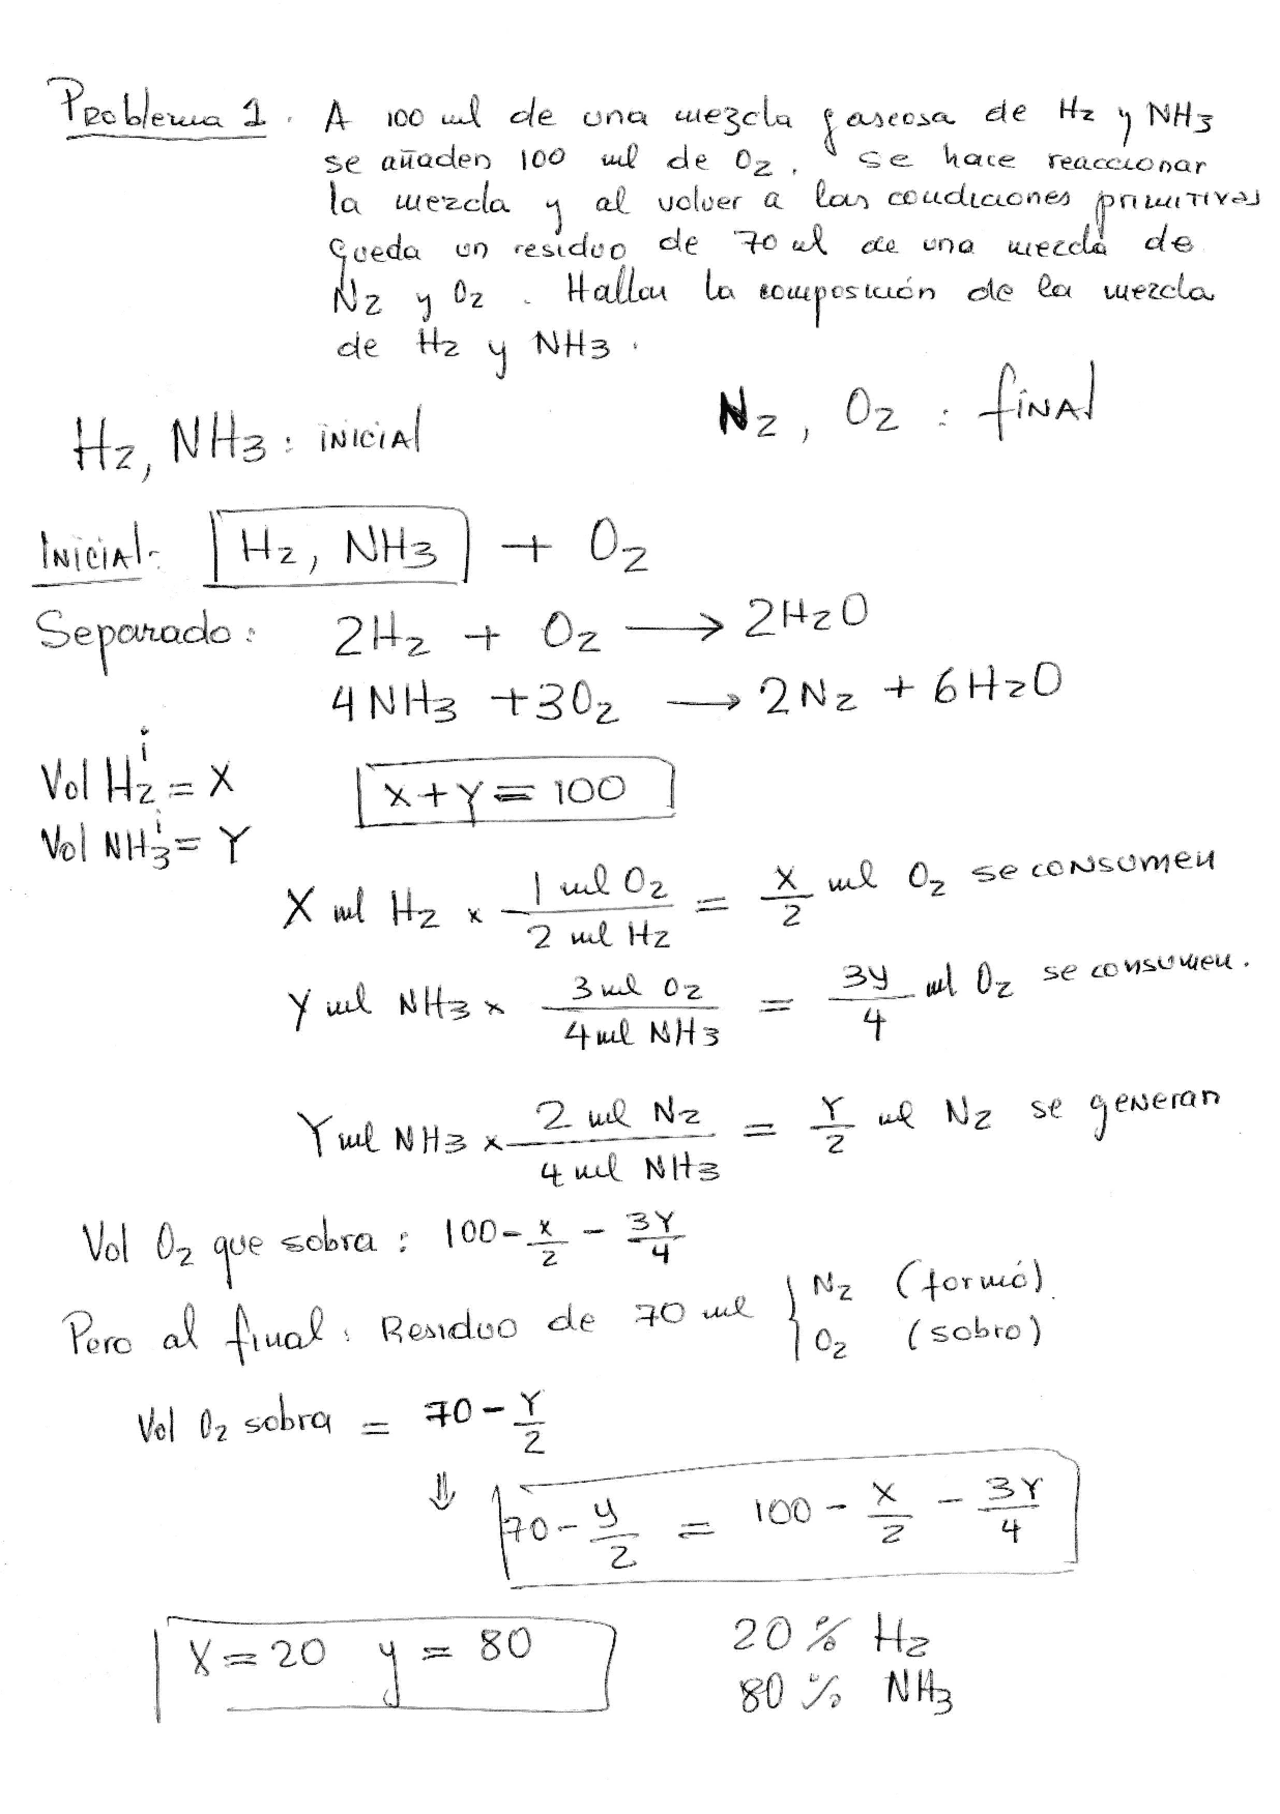 Problema 1. A 100 ml de una mezcla gaseosa de H2 y NH3
se añaden 100 ml de O2. Se hace reaccionar
la mezcla y al volver a las condiciones primitivas
queda un residuo de 70 ml de una mezcla de
N2 y O2. Hallar la composición de la mezcla
de H2 y NH3.
H2, NH3: inicial N2, O2: final
Inicial: H2, NH3 + O2
Separado: 2H2 + O2 → 2H2O
4NH3 + 3O2 → 2N2 + 6H2O
Vol H2^i = X X+Y = 100
Vol NH3^i = Y
X ml H2 x (1 ml O2)/(2 ml H2) = X/2 ml O2 se consumen
Y ml NH3 x (3 ml O2)/(4 ml NH3) = 3Y/4 ml O2 se consumen.
Y ml NH3 x (2 ml N2)/(4 ml NH3) = Y/2 ml N2 se generan
Vol O2 que sobra: 100 - X/2 - 3Y/4
Pero al final: Residuo de 70 ml { N2 (formó).
O2 (sobro)
Vol O2 sobra = 70 - Y/2
⇓ 70 - y/2 = 100 - X/2 - 3Y/4
X = 20 y = 80 20 % H2
80 % NH3